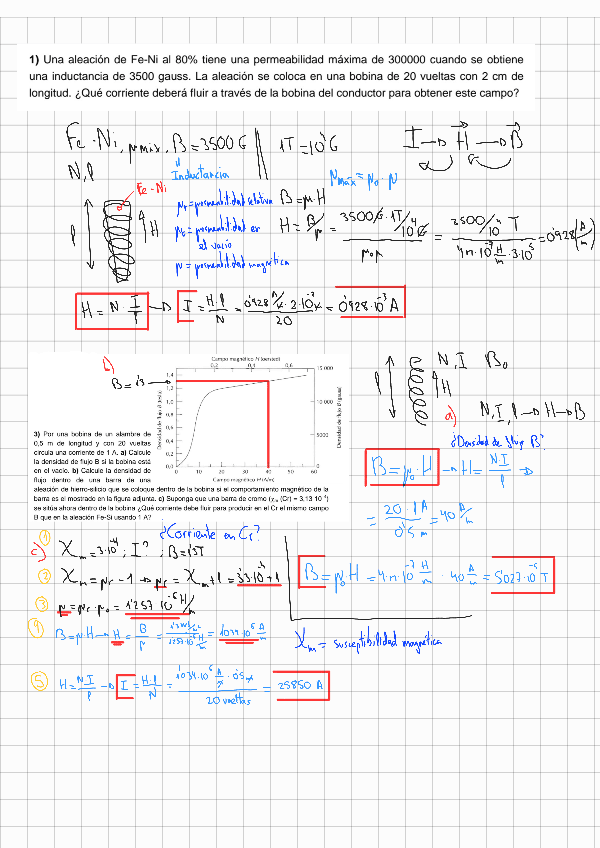 1) Una aleación de Fe-Ni al 80% tiene una permeabilidad máxima de 300000 cuando se obtiene
una inductancia de 3500 gauss. La aleación se coloca en una bobina de 20 vueltas con 2 cm de
longitud. ¿Qué corriente deberá fluir a través de la bobina del conductor para obtener este campo?
Fe-Ni, μmix, B = 3500 G
1T = 10⁴ G
I → H → B
N, l
Inductancia
μmáx = μ₀ · μ
Fe-Ni
μr = permeabilidad relativa
B = μ·H
l
H
μ₀ = permeabilidad en
el vacío
H = B/μ = 3500 G · 1T/10⁴ G / μ₀μ = 3500/10⁴ T / 4π·10⁻⁷ H/m · 3·10⁵ = 0'928 (A/m)
μ = permeabilidad magnética
H = N · I/l → I = H·l/N = 0'928 A/m · 2·10⁻² m / 20 = 0'928·10⁻³ A
b)
Campo magnético H (oersted)
0,2 0,4 0,6
B = 1'3
Densidad de flujo B (tesla)
1,4
1,2
1,0
0,8
0,6
0,4
0,2
0,0
15 000
10 000
5000
0
Densidad de flujo B (gauss)
0 10 20 30 40 50 60
Campo magnético H (A/m)
3) Por una bobina de un alambre de
0,5 m de longitud y con 20 vueltas
circula una corriente de 1 A. a) Calcule
la densidad de flujo B si la bobina está
en el vacío. b) Calcule la densidad de
flujo dentro de una barra de una
aleación de hierro-silicio que se coloque dentro de la bobina si el comportamiento magnético de la
barra es el mostrado en la figura adjunta. c) Suponga que una barra de cromo (χm (Cr) = 3,13 10⁻⁴)
se sitúa ahora dentro de la bobina ¿Qué corriente debe fluir para producir en el Cr el mismo campo
B que en la aleación Fe-Si usando 1 A?
l
N, I B₀
H
a)
N, I, l → H → B
¿Densidad de flujo B?
B = μ₀·H → H = N·I/l ⇒
= 20·1A / 0'5 m = 40 A/m
B = μ₀·H = 4π·10⁻⁷ H/m · 40 A/m = 5'027·10⁻⁵ T
χm = susceptibilidad magnética
¿Corriente en Cr?
c)
① χm = 3·10⁻⁴; I?; B = 1'3T
② χm = μr - 1 → μr = χm + 1 = 3'3·10⁻⁴ + 1
③ μ = μr·μ₀ = 1'257·10⁻⁶ H/m
④ B = μ·H → H = B/μ = = 1'034·10⁶ A/m
⑤ H = N·I/l → I = H·l/N = 1'034·10⁶ A/m · 0'5 m / 20 vueltas = 25850 A